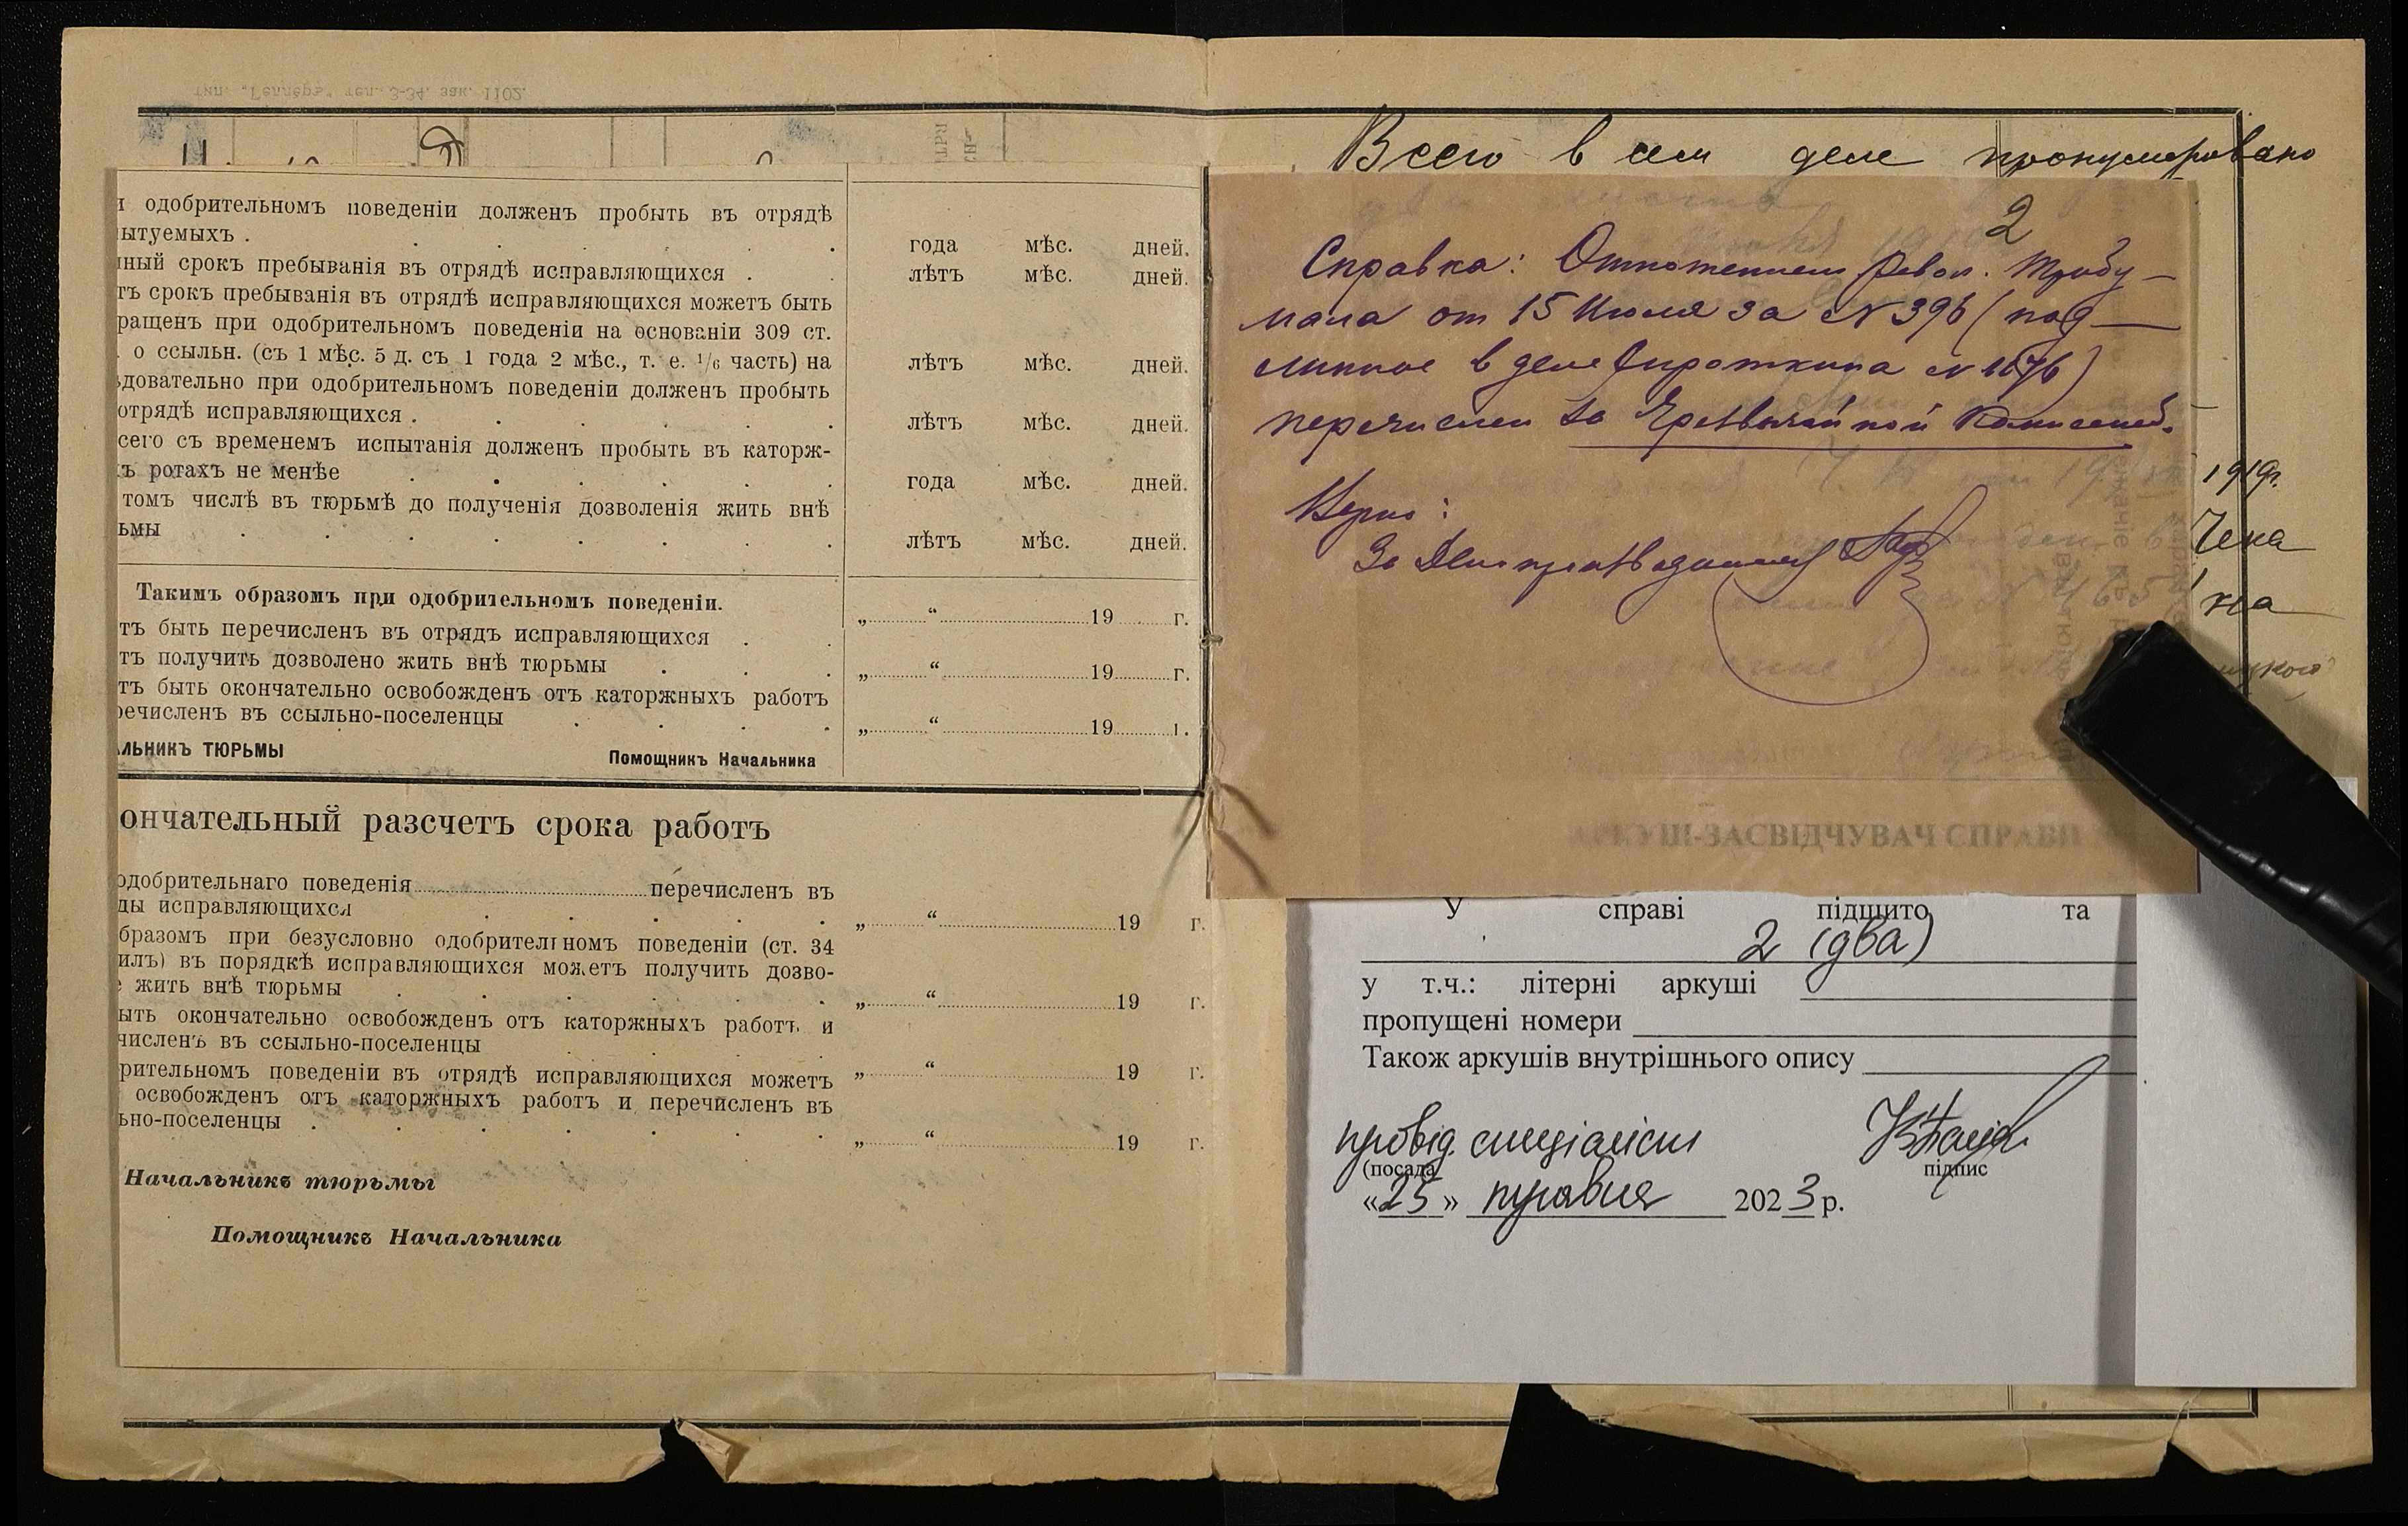 тип. „Геллеръ" тел. 3-34, зак. 1102.
Всего в сем деле пронумеровано
и одобрительномъ поведеніи долженъ пробыть въ отрядѣ
ытуемыхъ . года мѣс. дней.
ный срокъ пребыванія въ отрядѣ исправляющихся . лѣтъ мѣс. дней.
тъ срокъ пребыванія въ отрядѣ исправляющихся можетъ быть
ращенъ при одобрительномъ поведеніи на основаніи 309 ст.
. о ссыльн. (съ 1 мѣс. 5 д. съ 1 года 2 мѣс., т. е. 1/6 часть) на лѣтъ мѣс. дней.
ѣдовательно при одобрительномъ поведеніи долженъ пробыть
отрядѣ исправляющихся . лѣтъ мѣс. дней.
сего съ временемъ испытанія долженъ пробыть въ каторж-
ъ ротахъ не менѣе года мѣс. дней.
томъ числѣ въ тюрьмѣ до полученія дозволенія жить внѣ
ьмы лѣтъ мѣс. дней.
Такимъ образомъ при одобрительномъ поведеніи.
„ “ 19 г.
тъ быть перечисленъ въ отрядъ исправляющихся .
тъ получить дозволено жить внѣ тюрьмы „ “ 19 г.
тъ быть окончательно освобожденъ отъ каторжныхъ работъ
речисленъ въ ссыльно-поселенцы „ “ 19 г.
АЛЬНИКЪ ТЮРЬМЫ Помощникъ Начальника
ончательный разсчетъ срока работъ
одобрительнаго поведенія перечисленъ въ
ды исправляющихся „ “ 19 г.
бразомъ при безусловно одобрительномъ поведеніи (ст. 34
илъ) въ порядкѣ исправляющихся можетъ получить дозво-
е жить внѣ тюрьмы „ “ 19 г.
ыть окончательно освобожденъ отъ каторжныхъ работъ и
численъ въ ссыльно-поселенцы
рительномъ поведеніи въ отрядѣ исправляющихся можетъ „ “ 19 г.
освобожденъ отъ каторжныхъ работъ и перечисленъ въ
ьно-поселенцы . „ “ 19 г.
Начальникъ тюрьмы
Помощникъ Начальника
2
Справка: Отношением Револ. Трибу-
нала от 15 Июля за № 396 (под-
линное в деле Сироткина № 1676)
перечислен за Чрезвычайной Комиссией.
Верно:
За Делопроизводителя
1919г.
Чека
ка
АРКУШ-ЗАСВІДЧУВАЧ СПРАВИ
У справі підшито та
2 (два)
у т.ч.: літерні аркуші
пропущені номери
Також аркушів внутрішнього опису
провід. спеціаліст
(посада підпис
«25» травня 2023 р.